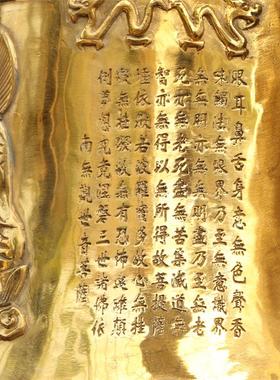 眼耳鼻舌身意無色聲香
味觸法無眼界乃至無意識界
無無明亦無無明盡乃至無老
死亦無老死盡無苦集滅道無
智亦無得以無所得故菩提薩
埵依般若波羅蜜多故心無挂
礙無挂礙故無有恐怖遠離顛
倒夢想究竟涅槃三世諸佛依
南無觀世音菩薩